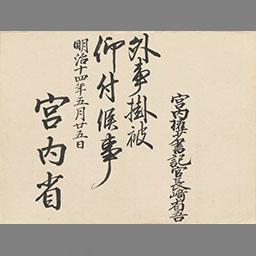 宮内権少書記官長崎省吾
外事掛被
仰付候事
明治十四年五月廿五日
宮内省